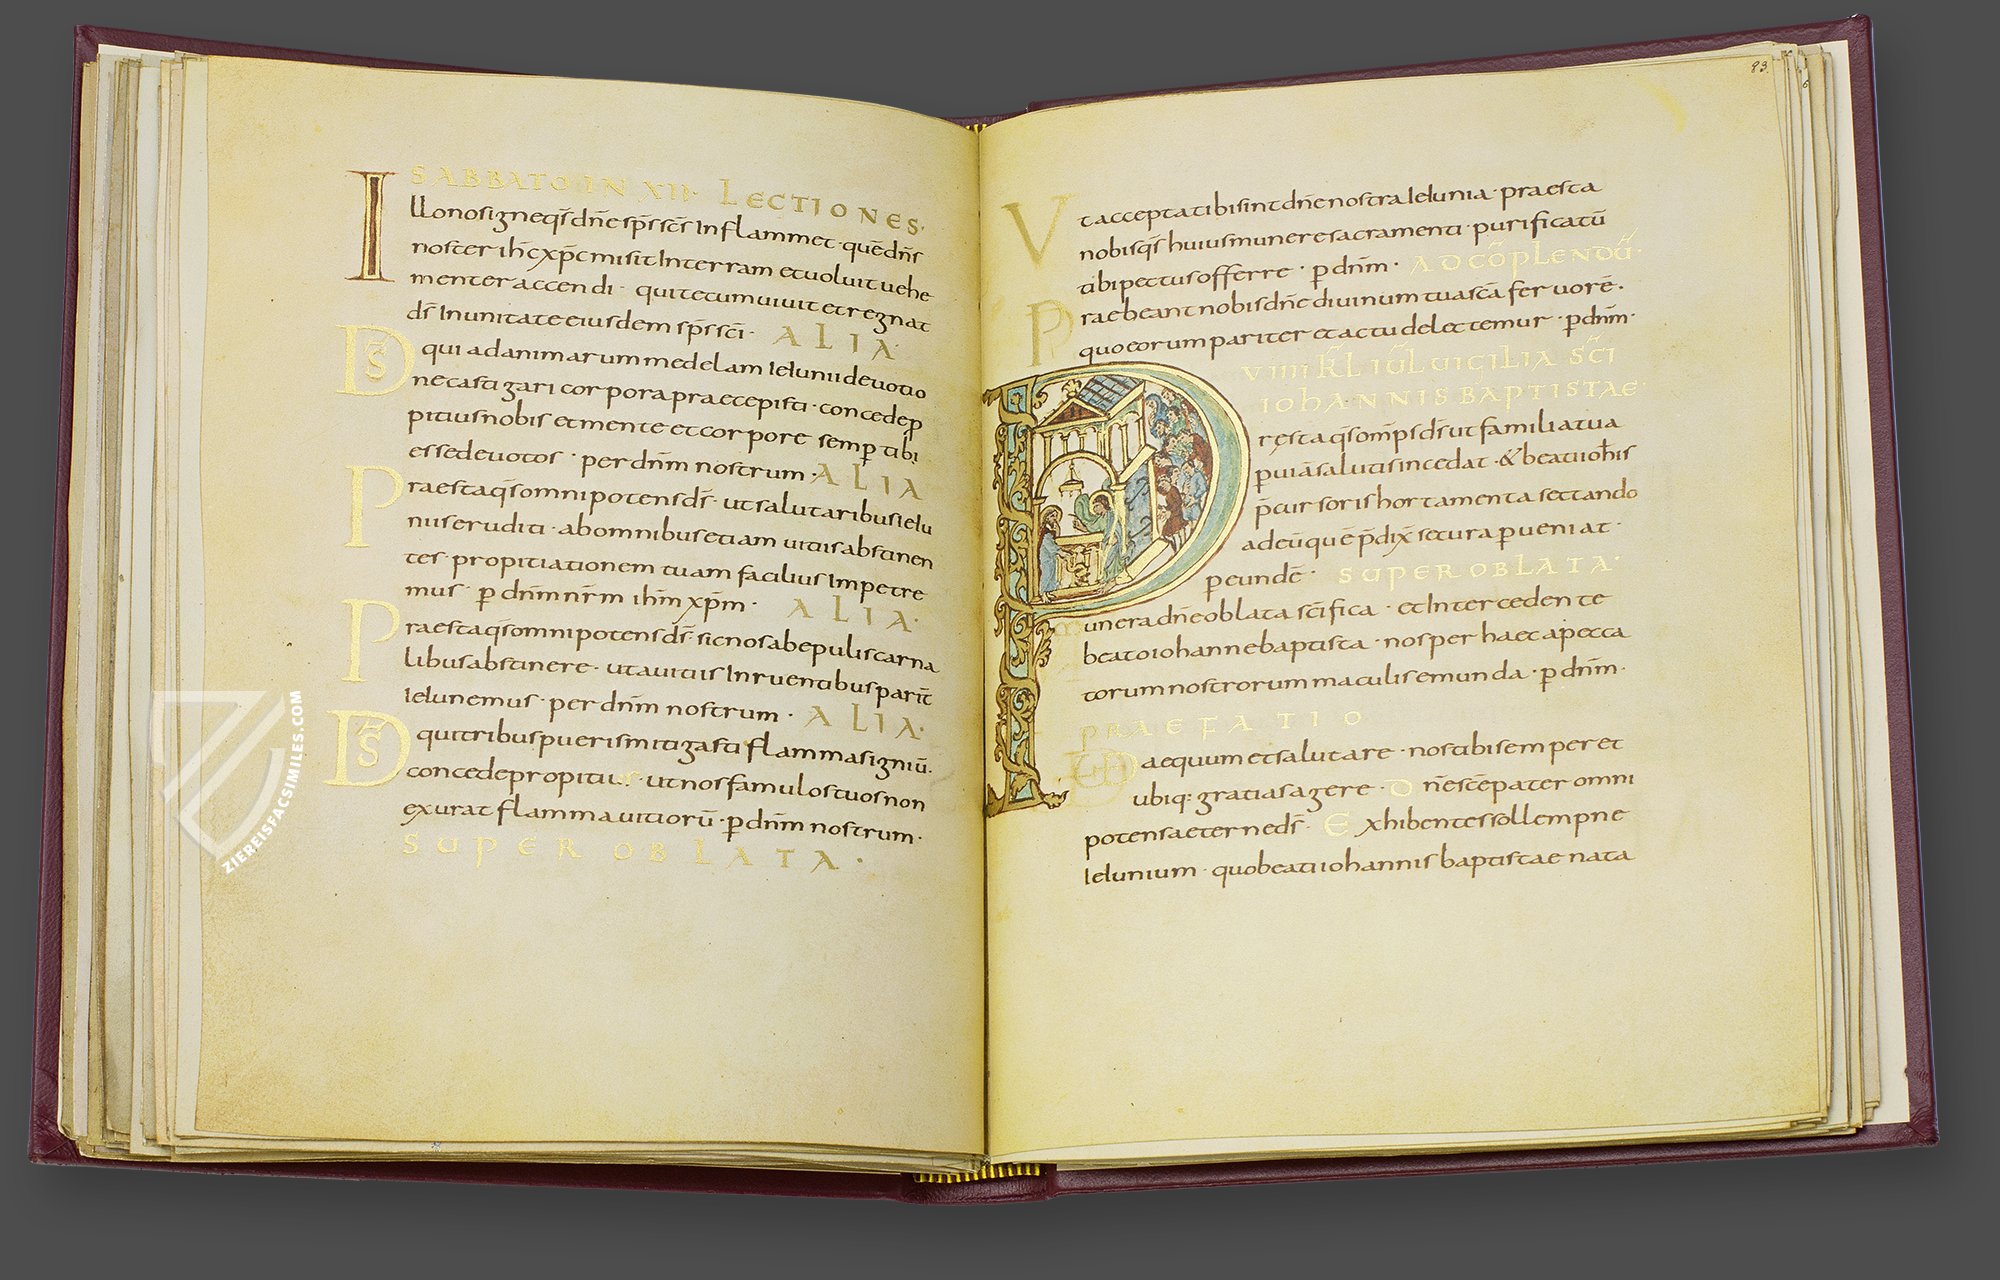 SABBATO IN XII· LECTIONES·
Illo nos igne qs̄ dn̄e sp̄s sc̄s Inflammet · quē dn̄s
noster ih̄c xp̄c misit Interram et uoluit uehe
menter accendi · qui tecum uiuit et regnat
ds̄ Inunitate eiusdem sp̄s sc̄i · ALIA·
DS̄ qui ad animarum medelam Ieiunii deuotio
ne castigari corpora praecepisti · concede p
pitius nobis et mente et corpore semp tibi
esse deuotos · per dn̄m nostrum · ALIA
Praesta qs̄ omnipotens ds̄ · ut salutaribus Ieiu
niis eruditi · ab omnibus etiam uitiis abstinen
tes · propitiationem tuam facilius Impetre
mus · p dn̄m nr̄m ih̄m xp̄m · ALIA·
Praesta qs̄ omnipotens ds̄ · sic nos ab epulis carna
libus abstinere · ut a uitiis Inruentibus parit̄
Ieiunemus · per dn̄m nostrum · ALIA·
DS̄ qui tribus pueris mitigasti flammas igniū·
concede propitius · ut nos famulos tuos non
exurat flamma uitiorū · p dn̄m nostrum ·
SUPER OBLATA ·
83.
Vt accepta tibi sint dn̄e nostra Ieiunia · praesta
nobis qs̄ huius munere sacramenti · purificatū
tibi pectus offerre · p dn̄m · AD CŌPLENDŪ·
Praebeant nobis dn̄e diuinum tua sc̄a feruorē ·
quo eorum pariter et actu delectemur · p dn̄m·
VIIII KL̄ IŪL UIGILIA SC̄I
IOHANNIS BAPTISTAE·
Praesta qs̄ omp̄s ds̄ ut familia tua
p uiā salutis incedat · & beati ioh̄is
p̄cursoris hortamenta sectando
ad eū quē p̄dix̄ secura p ueniat ·
p eundē · SUPER OBLATA·
Munera dn̄e oblata sc̄ifica · et Intercedente
beato iohanne baptista · nos per haec a pecca
torum nostrorum maculis emunda · p dn̄m·
PRAEFATIO
aequum et salutare · nos tibi semper et
ubiq: gratias agere · Dn̄e sc̄e pater omni
potens aeterne ds̄ · Exhibentes sollempne
Ieiunium · quo beati iohannis baptistae nata
ZIEREISFACSIMILES.COM